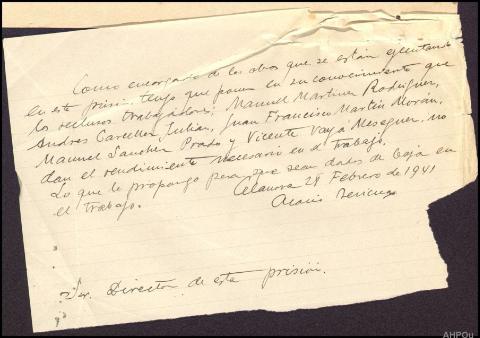 Como encargado de las obras que se están ejecutando
en esta prisión, tengo que poner en su conocimiento que
los reclusos trabajadores, Manuel Martinez Rodriguez,
Andres Carceller Julian, Juan Francisco Martin Morán,
Manuel Sanchez Prado y Vicente Vayá Meseguer, no
dan el rendimiento necesario en el trabajo.
Lo que le propongo para que sean dados de baja en
el trabajo.
Celanova 28 Febrero de 1941
Sr. Director de esta prisión.
AHPOu